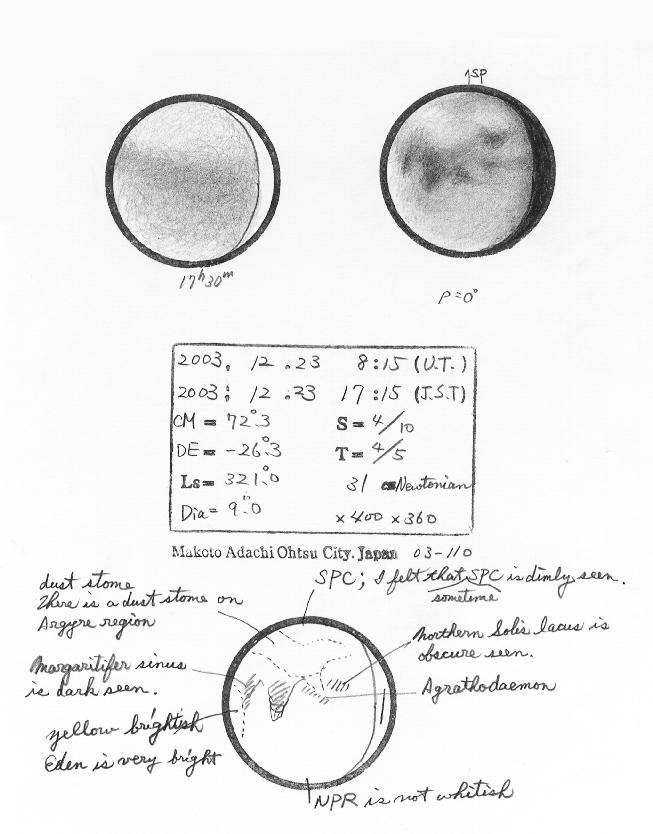 ↑SP
17ʰ30ᵐ
P=0°
2003. 12 .23 8:15 (U.T.)
2003. 12 .23 17:15 (J.S.T)
CM = 72°.3 S = 4/10
DE = -26°.3 T = 4/5
Ls = 321°.0 31 cm Newtonian
Dia = 9".0 ×400 ×360
Makoto Adachi Ohtsu City. Japan 03-110
SPC; I felt that SPC is dimly seen.
sometime
dust stome
There is a dust stome on
Argyre region
Northern Solis lacus is
obscure seen.
Margaritifer sinus
is dark seen.
Agrathodaemon
yellow brightish
Eden is very bright
NPR is not whitish